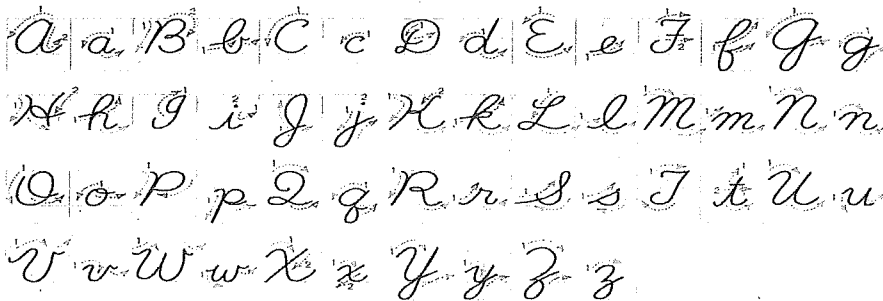 A a B b C c D d E e F f G g
H h I i J j K k L l M m N n
O o P p Q q R r S s T t U u
V v W w X x Y y Z z